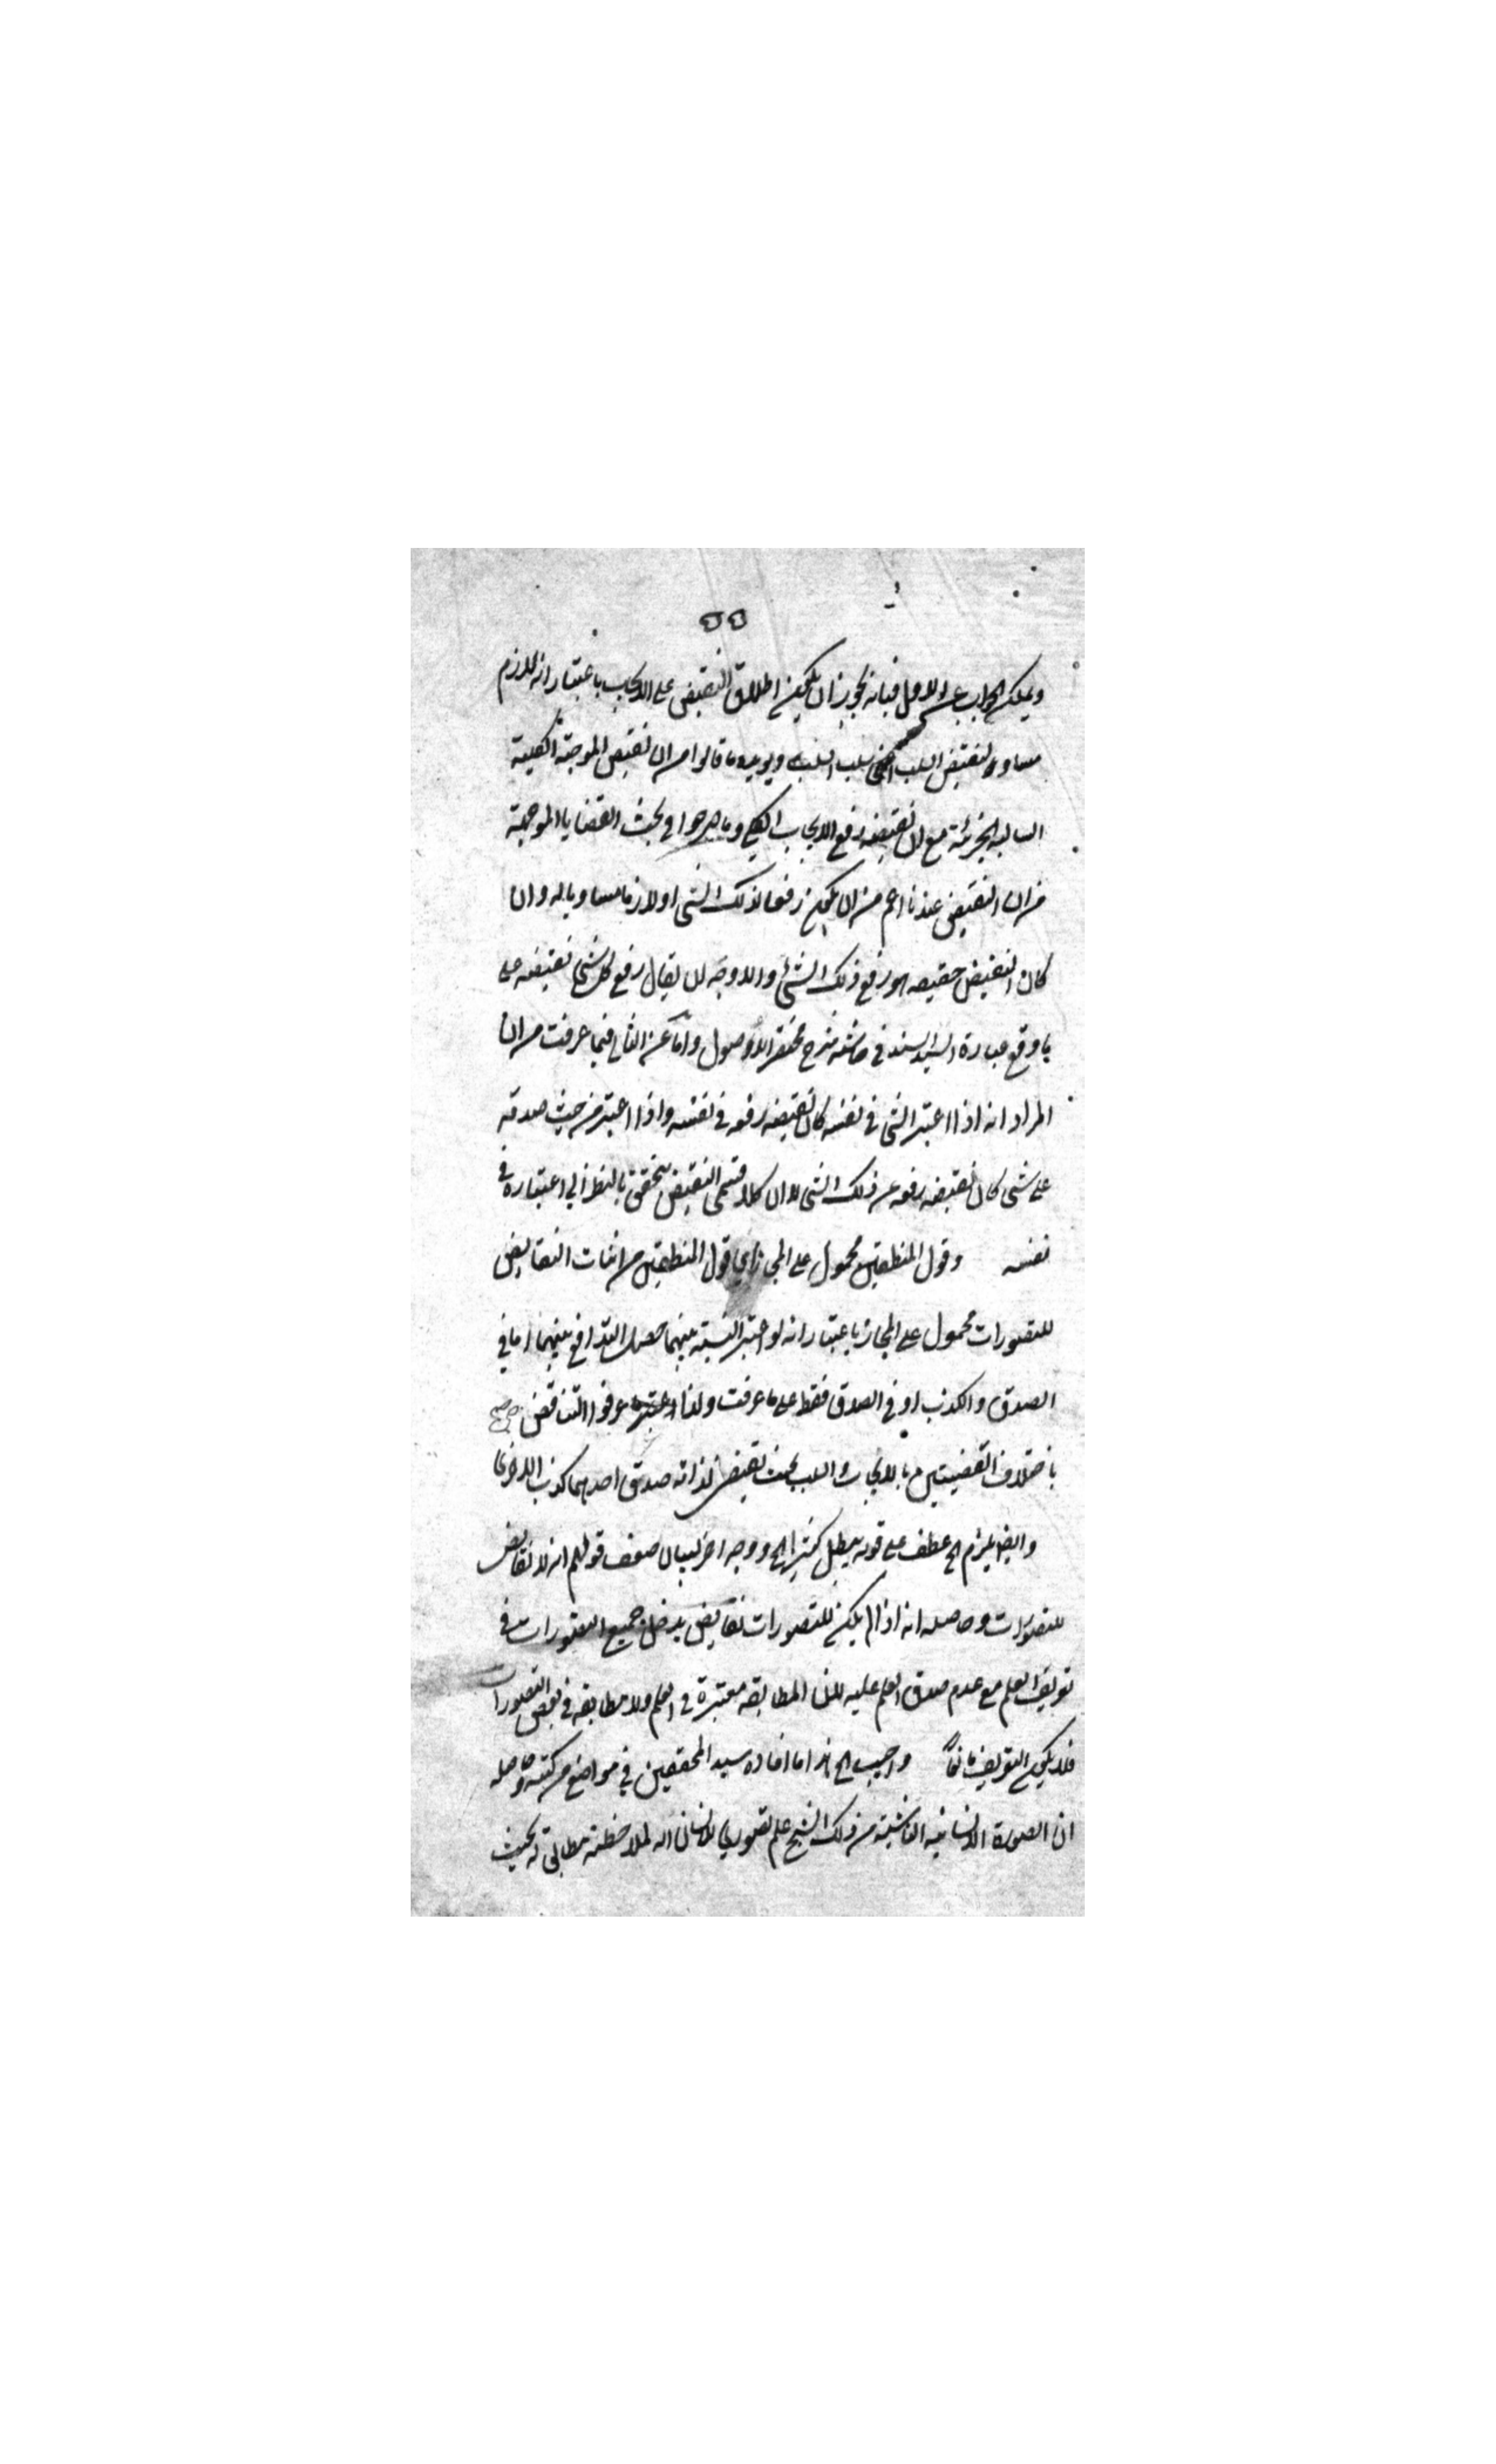 ٥٥
ويمكن الجواب عن الاول فبانه يجوز ان يكون اطلاق النقيض على الايجاب باعتبار انه لازم
مساو لنقيض السلب اعني سلب السلب ويؤيده ما قالوا من ان نقيض الموجبة الكلية
السالبة الجزئية مع ان نقيضه رفع الايجاب الكلي وما صرحوا في بحث القضايا الموجهة
من ان النقيض عندنا اعم من ان يكون رفعا لذلك الشئ او لازما مساويا له وان
كان النقيض حقيقة هو رفع ذلك الشئ والاوجه ان يقال رفع كل شئ نقيضه على
ما وقع عبارة السيد السند في حاشية شرح مختصر الاصول واما عن الثاني فبما عرفت من ان
المراد انه اذا اعتبر الشئ في نفسه كان نقيضه رفعه في نفسه واذا اعتبر من حيث صدقه
على شئ كان نقيضه رفعه عن ذلك الشئ لا ان كلا قسمي النقيض يتحقق بالنظر الى اعتباره في
نفسه وقول المنطقيين محمول على المجاز اي قول المنطقيين من اثبات النقايض
للتصورات محمول على المجاز باعتبار انه لو اعتبر النسبة بينهما حصل التدافع بينهما اما في
الصدق والكذب او في الصدق فقط على ما عرفت ولذا عرفوا التناقض
باختلاف القضيتين بالايجاب والسلب بحيث يقتضي لذاته صدق احدهما كذب الاخرى
وايضا يلزم الخ عطف على قوله يبطل كثير الخ ووجه اخر لبيان ضعف قولهم انه لا نقايض
للتصورات وحاصله انه اذا لم يكن للتصورات نقايض يدخل جميع التصورات في
تعريف العلم مع عدم صدق العلم عليه لان المطابقة معتبرة في العلم ولا مطابقة في بعض التصورات
فلا يكون التعريف مانعا واجيب الخ هذا ما افاده سيد المحققين في مواضع من كتبه وحاصله
ان الصورة الانسانية الناشئة من ذلك الشبح علم تصوري للانسان آلة لملاحظته مطابق له بحيث